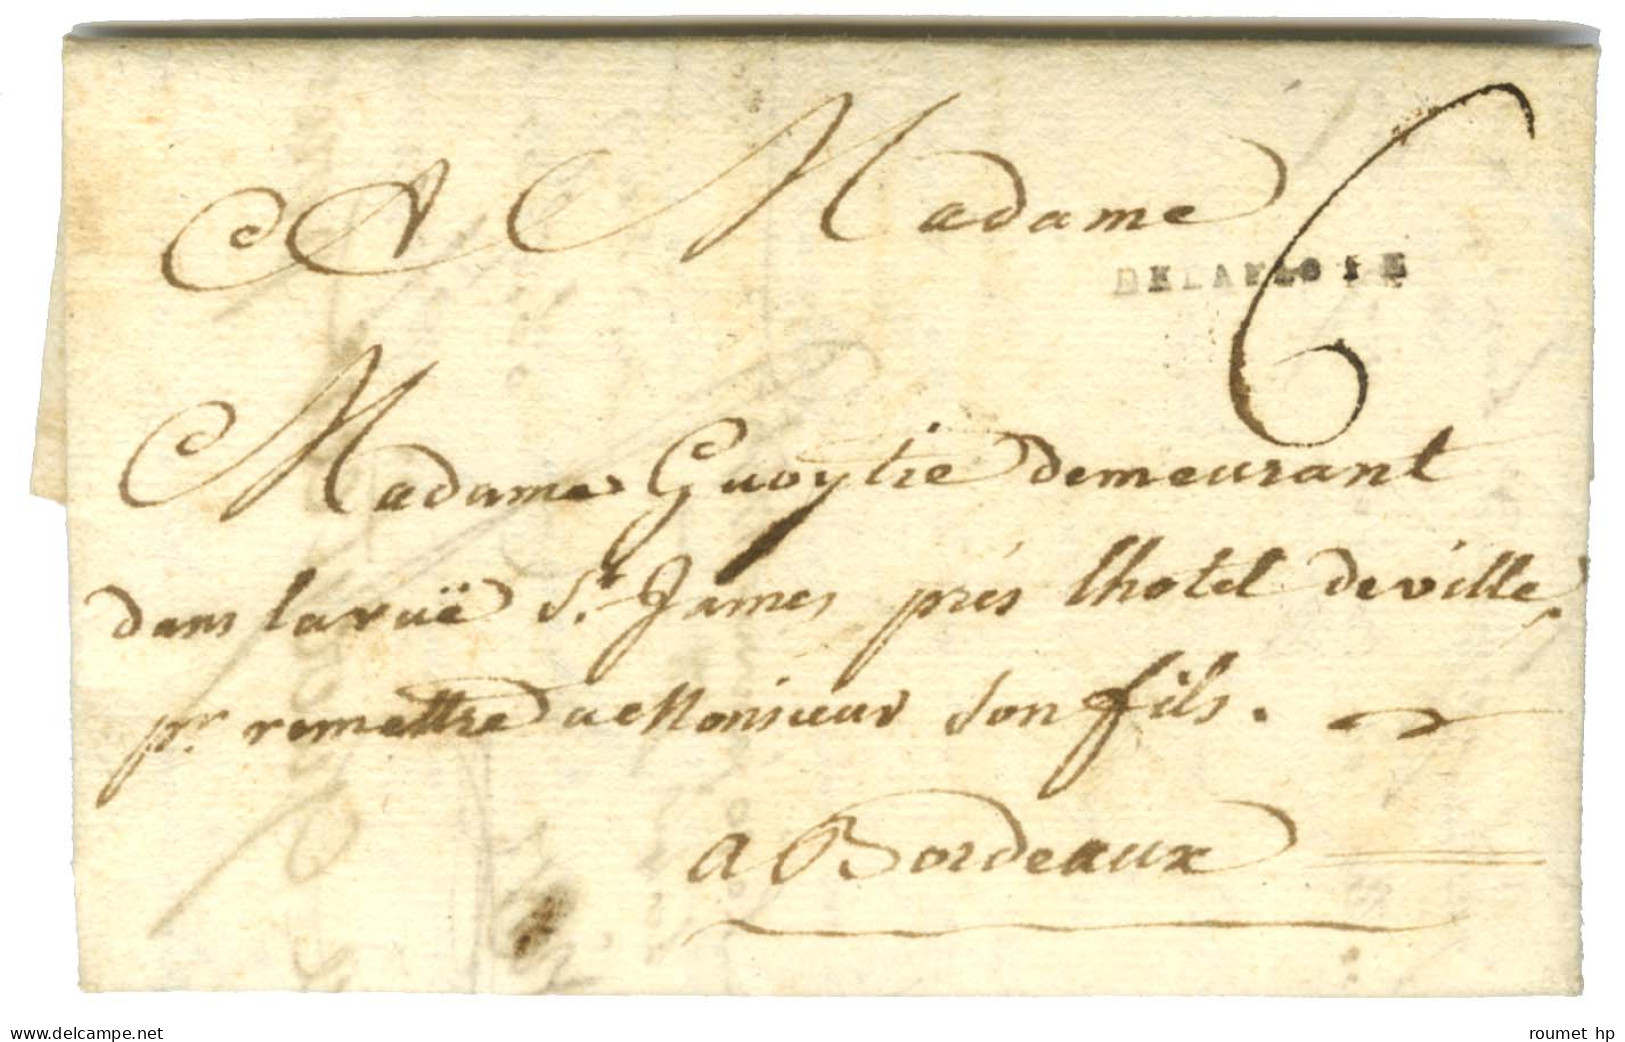 A Madame
6
DELAFLOTE
Madame Guoytie demeurant
dans la ruë St. James prés lhotel de ville,
pr. remettre a Monsieur Son fils.
a Bordeaux
www.delcampe.net
roumet hp